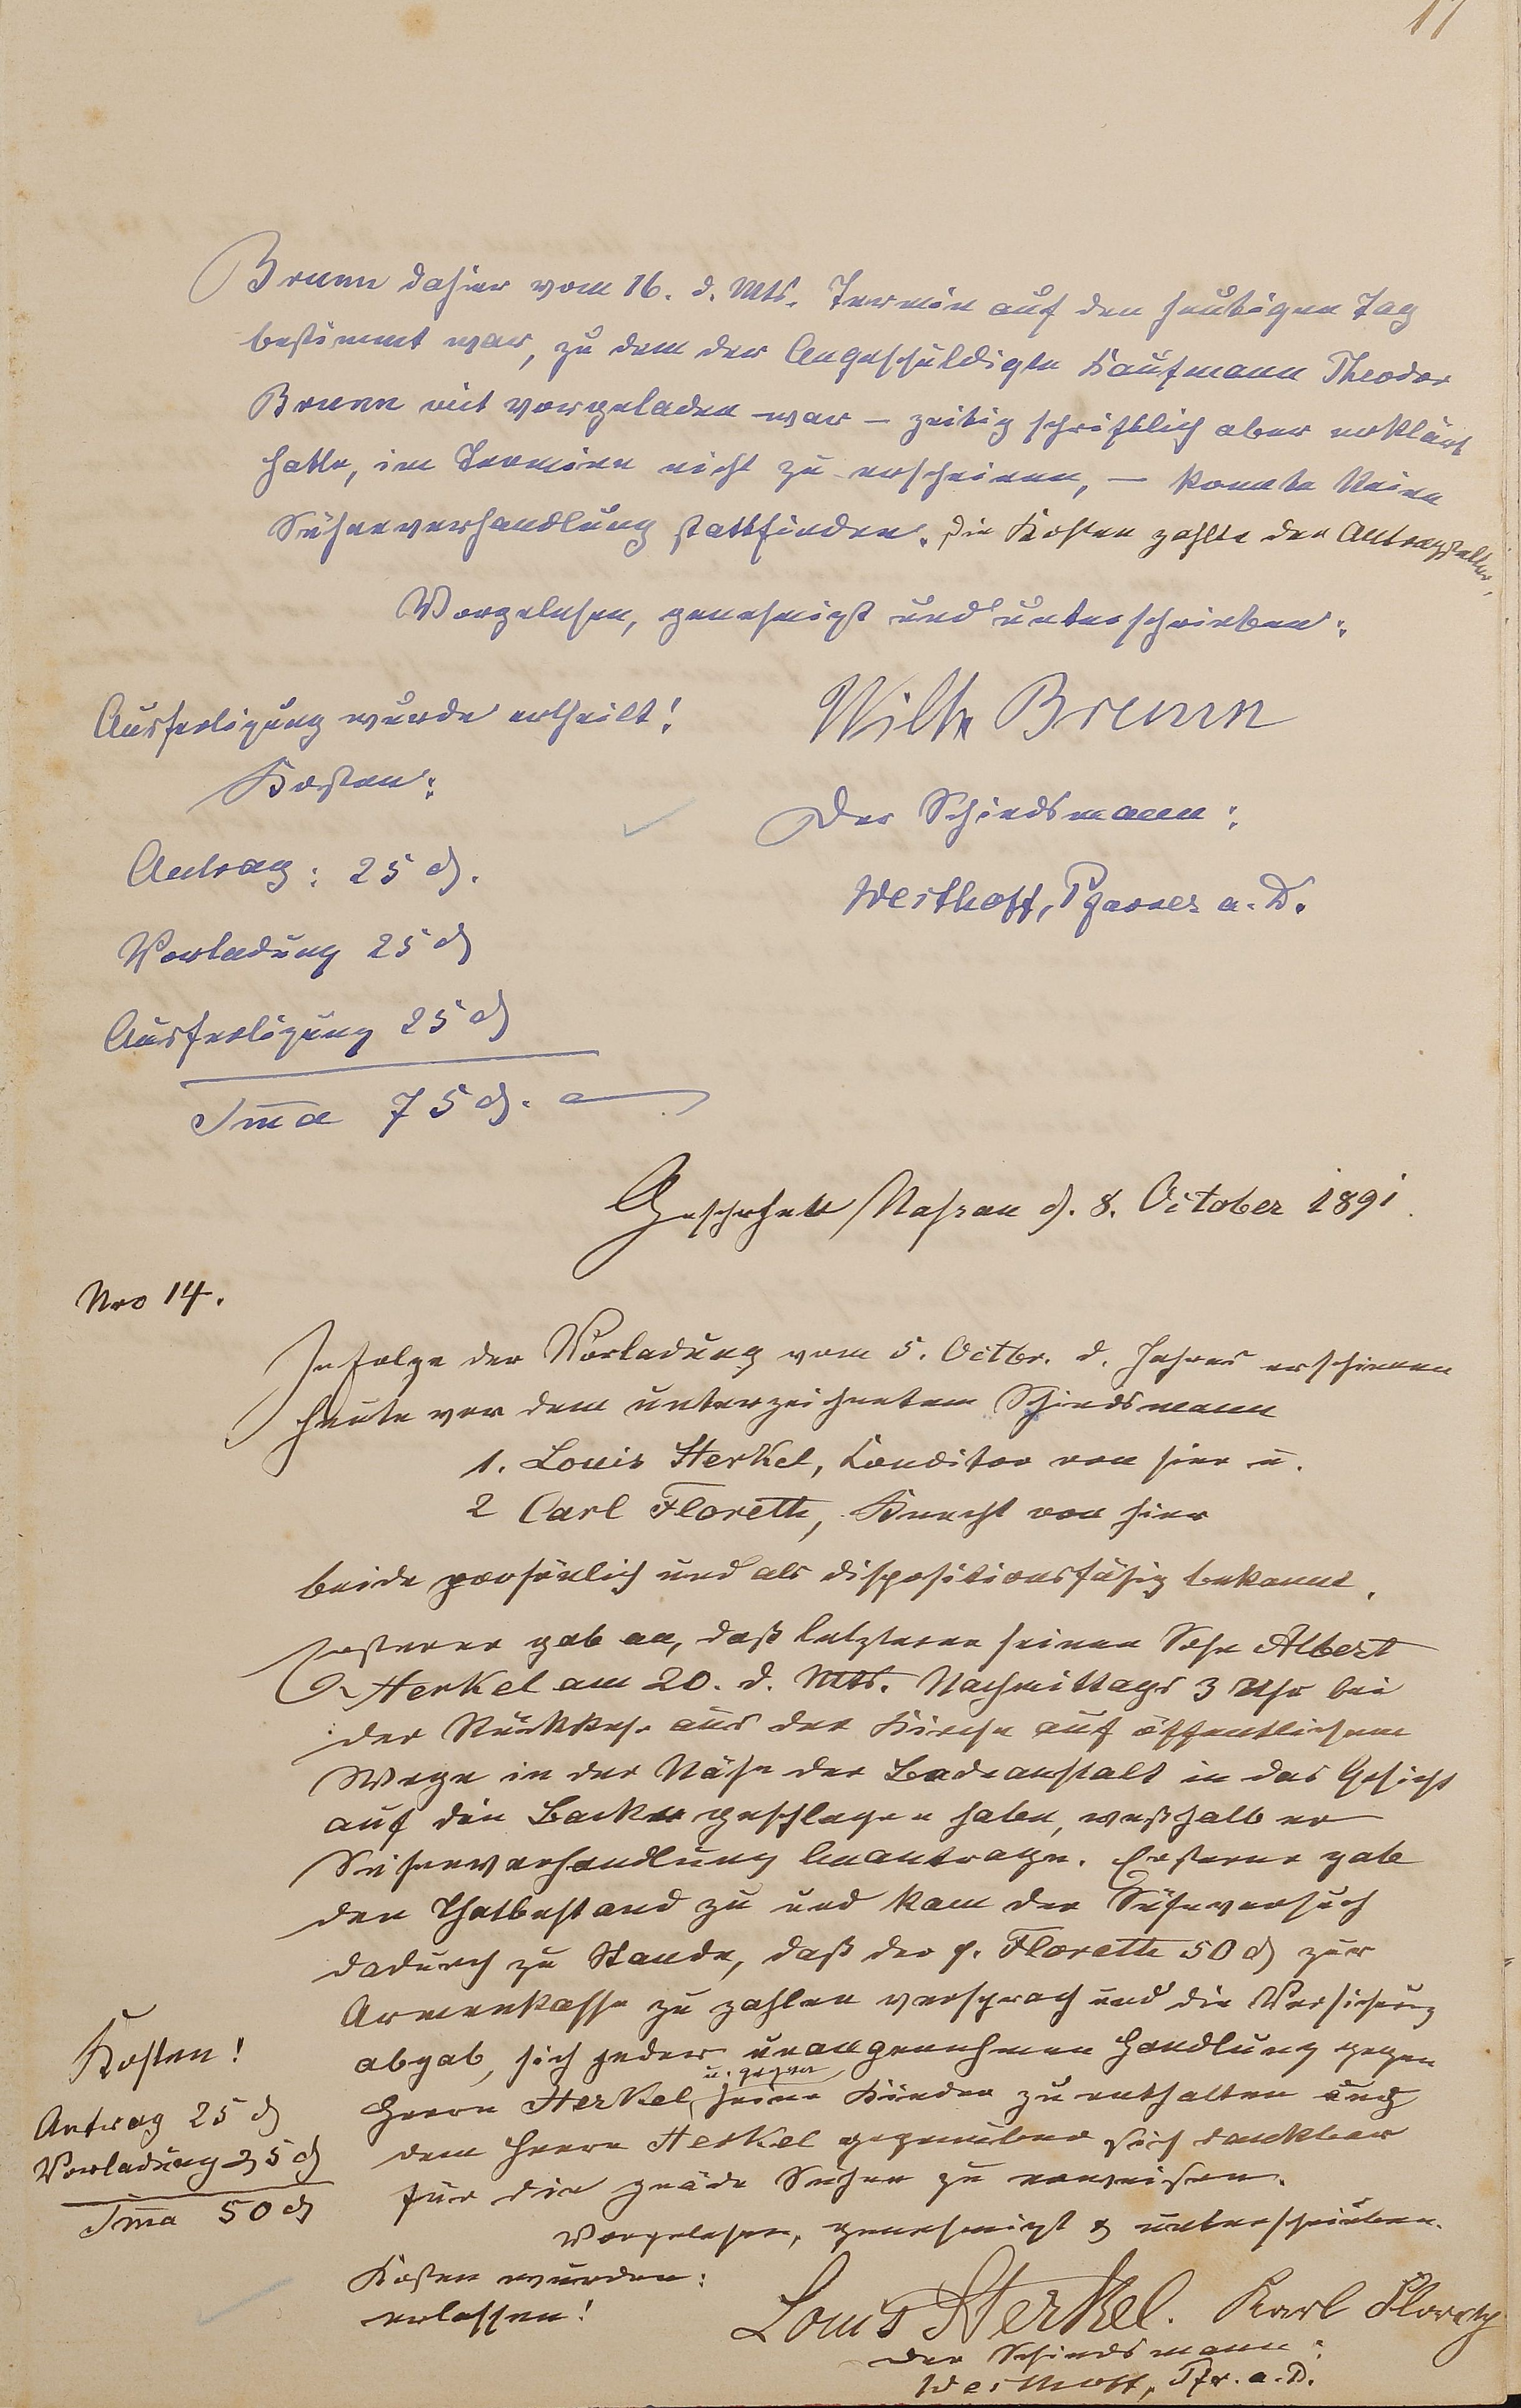 17
Brunn dahier vom 16. d. Mts. Termin auf den heutigen Tag
bestimmt war, zu dem der Angeschuldigte Kaufmann Theodor
Brunn mit vorgeladen war – zeitig schriftlich aber erklärt
hatte, im Termine nicht zu erscheinen, – konnte keine
Sühneverhandlung stattfinden. Die Kosten zahlte der Antragsteller.
Vorgelesen, genehmigt und unterschrieben:
Ausfertigung wurde ertheilt!
Wilh Brunn
Kosten:
Der Schiedsmann:
Antrag: 25 ₰.
Westhoff, Pfarrer a. D.
Vorladung 25 ₰
Ausfertigung 25 ₰
Sm̄a 75 ₰.
Geschehen Nassau d. 8. October 1891.
Nro 14.
In folge der Vorladung vom 5. Octbr. d. Jahres erschienen
heute vor dem unterzeichneten Schiedsmann
1. Louis Herkel, Konditor von hier u.
2 Carl Floreth, Knecht von hier
beide persönlich und als dispositionsfähig bekannt.
Ersterer gab an, daß letzterer seinen Sohn Albert
Herkel am 20. d. Mts. Nachmittags 3 Uhr bei
der Rückkehr aus der Kirche auf öffentlichem
Wege in der Nähe der Badeanstalt in das Gesicht
auf die Backe geschlagen habe, weßhalb er
Sühneverhandlung beantrage. Letzterer gab
den Thatbestand zu und kam der Sühneversuch
dadurch zu Stande, daß der p. Floreth 50 ₰ zur
Armenkasse zu zahlen versprach und die Versicherung
abgab, sich jeder unangenehmen Handlung gegen
u. gegen
Herrn Herkel, seine Kinder zu enthalten und
dem Herrn Herkel gegenüber sich dankbar
für die Sühne zu erweisen.
Kosten!
Antrag 25 ₰
Vorladung 25 ₰
Sm̄a 50 ₰
Vorgelesen, genehmigt & unterschrieben.
Kosten wurden:
erlassen!
Louis Herkel. Karl Floreth
Der Schiedsmann:
Westhoff, Pfr. a. D.